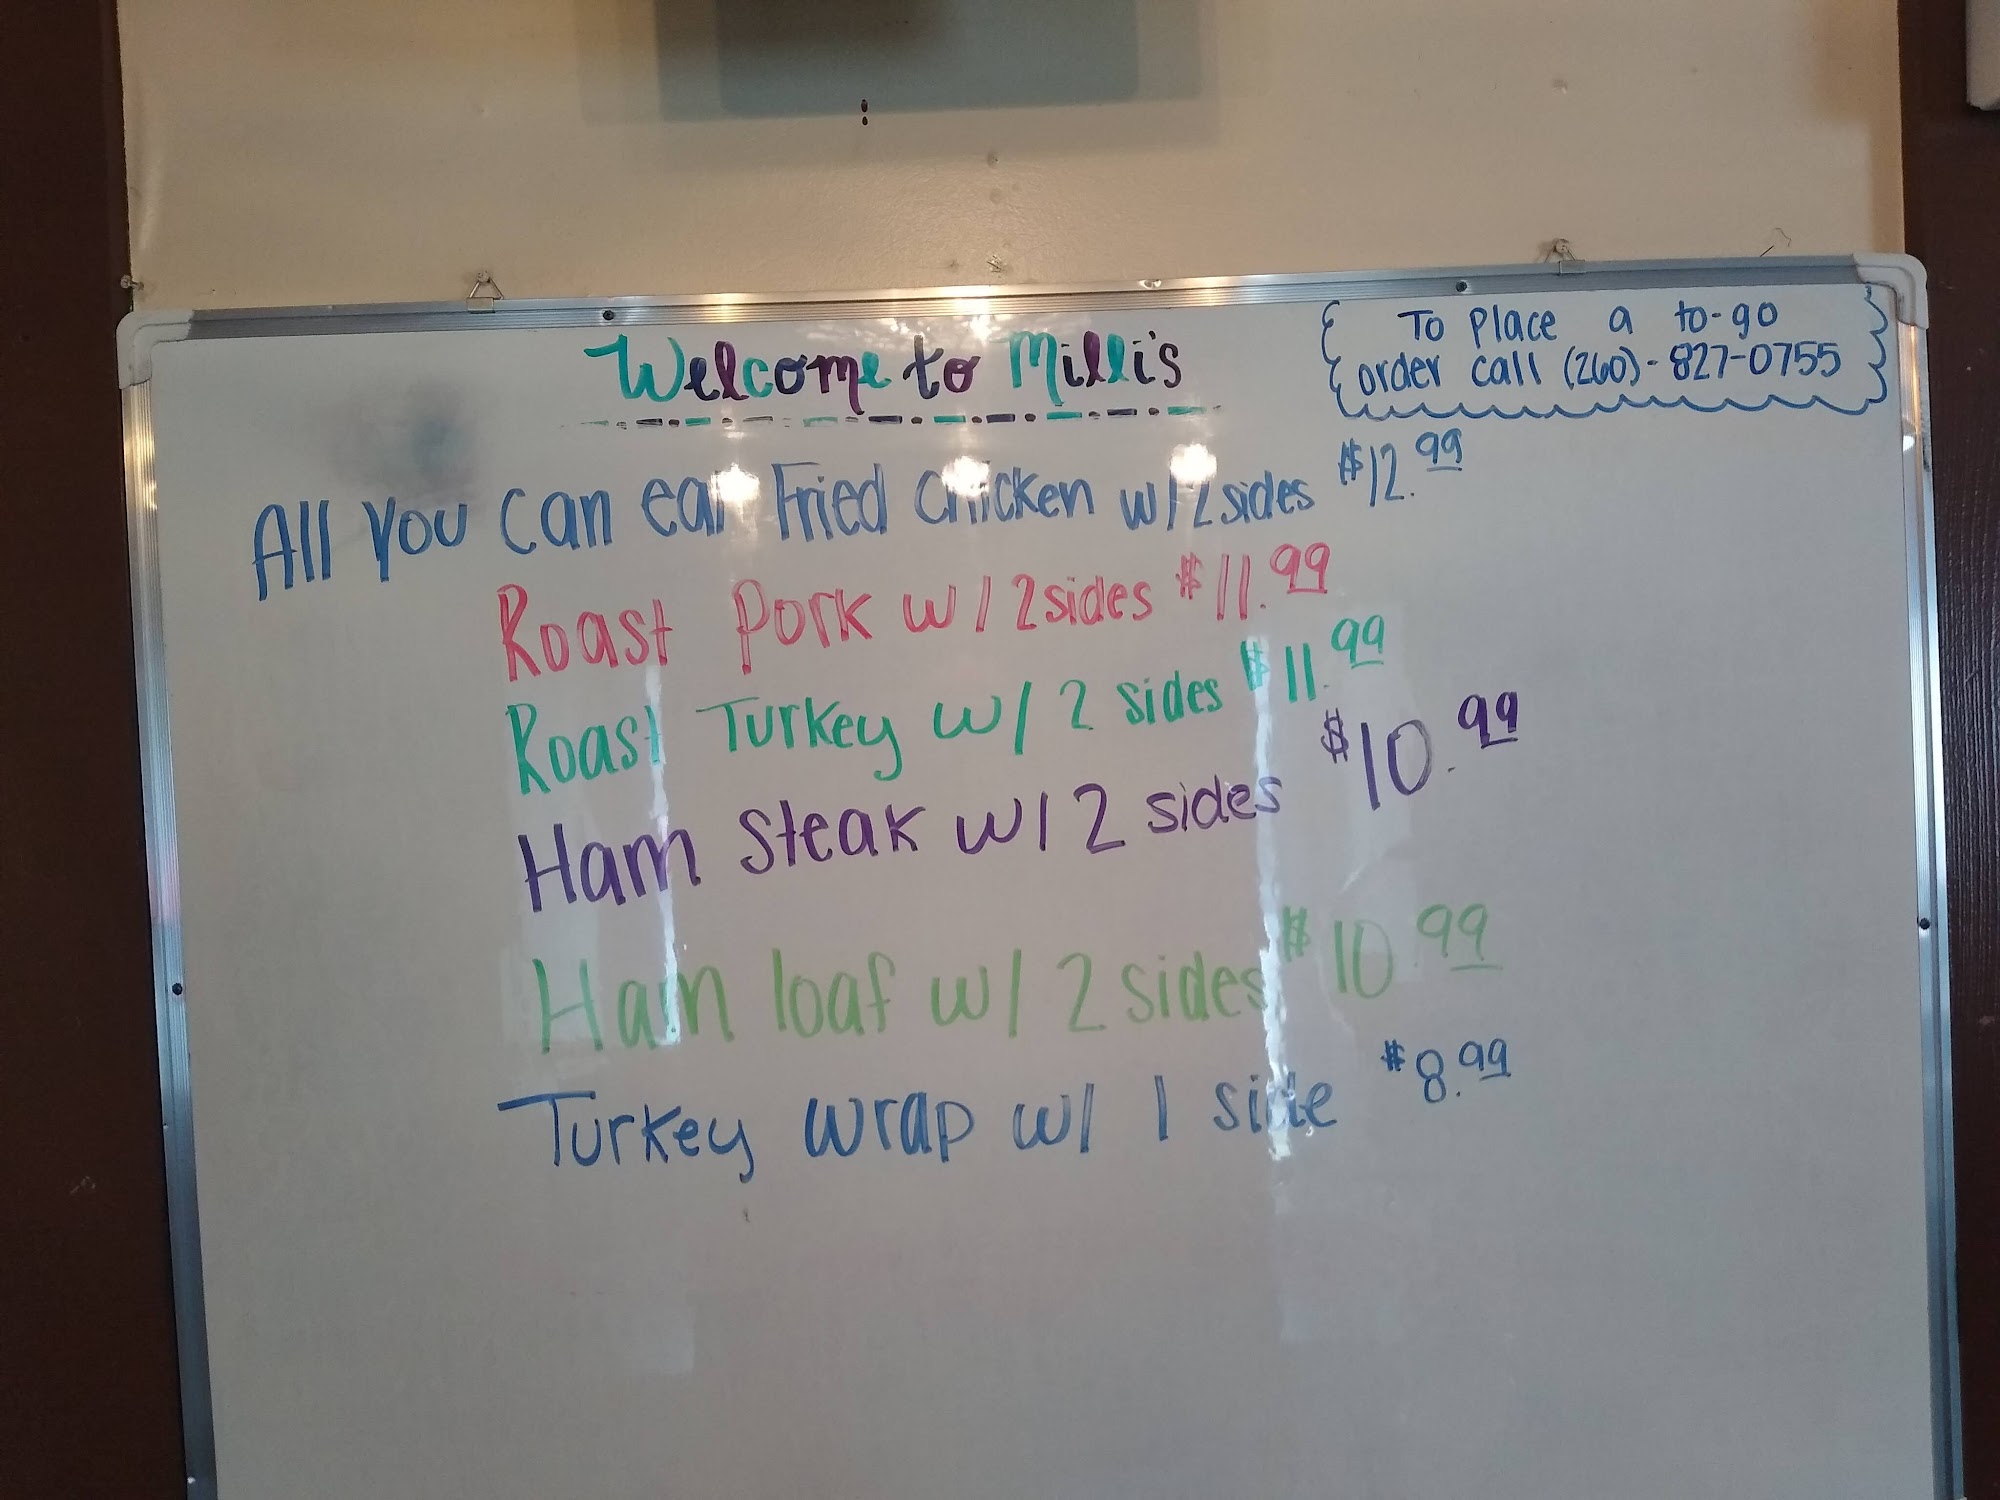 Welcome to Milli's
To Place a to-go
order call (260)-827-0755
All you can eat Fried Chicken w/ 2 sides $12.99
Roast Pork w/ 2 sides $11.99
Roast Turkey w/ 2 sides $11.99
Ham Steak w/ 2 sides $10.99
Ham loaf w/ 2 sides $10.99
Turkey wrap w/ 1 side $8.99